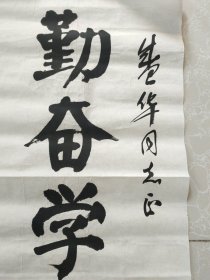 华同志正
勤奋学